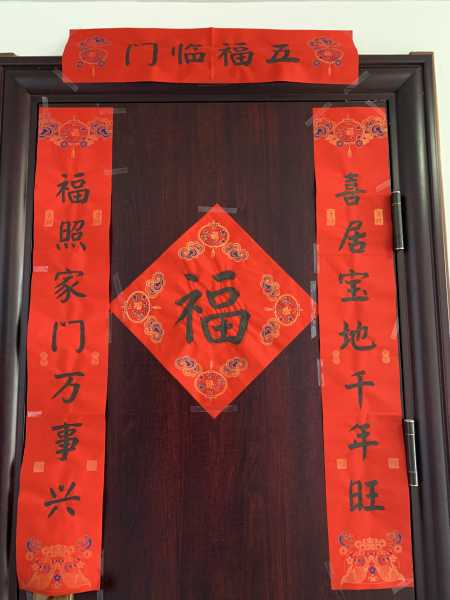 五福临门
喜居宝地千年旺
福照家门万事兴
福